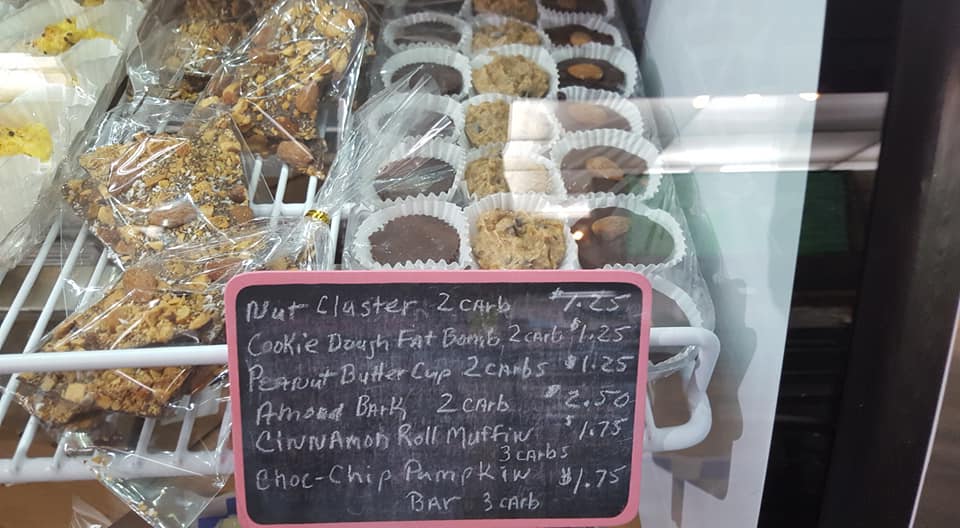 Nut Cluster 2 carb $1.25
Cookie Dough Fat Bomb, 2 carb $1.25
Peanut Butter Cup 2 carbs $1.25
Amond Bark 2 carb $2.50
Cinnamon Roll Muffin $1.75
3 carbs
Choc-Chip Pumpkin $1.75
Bar 3 carb